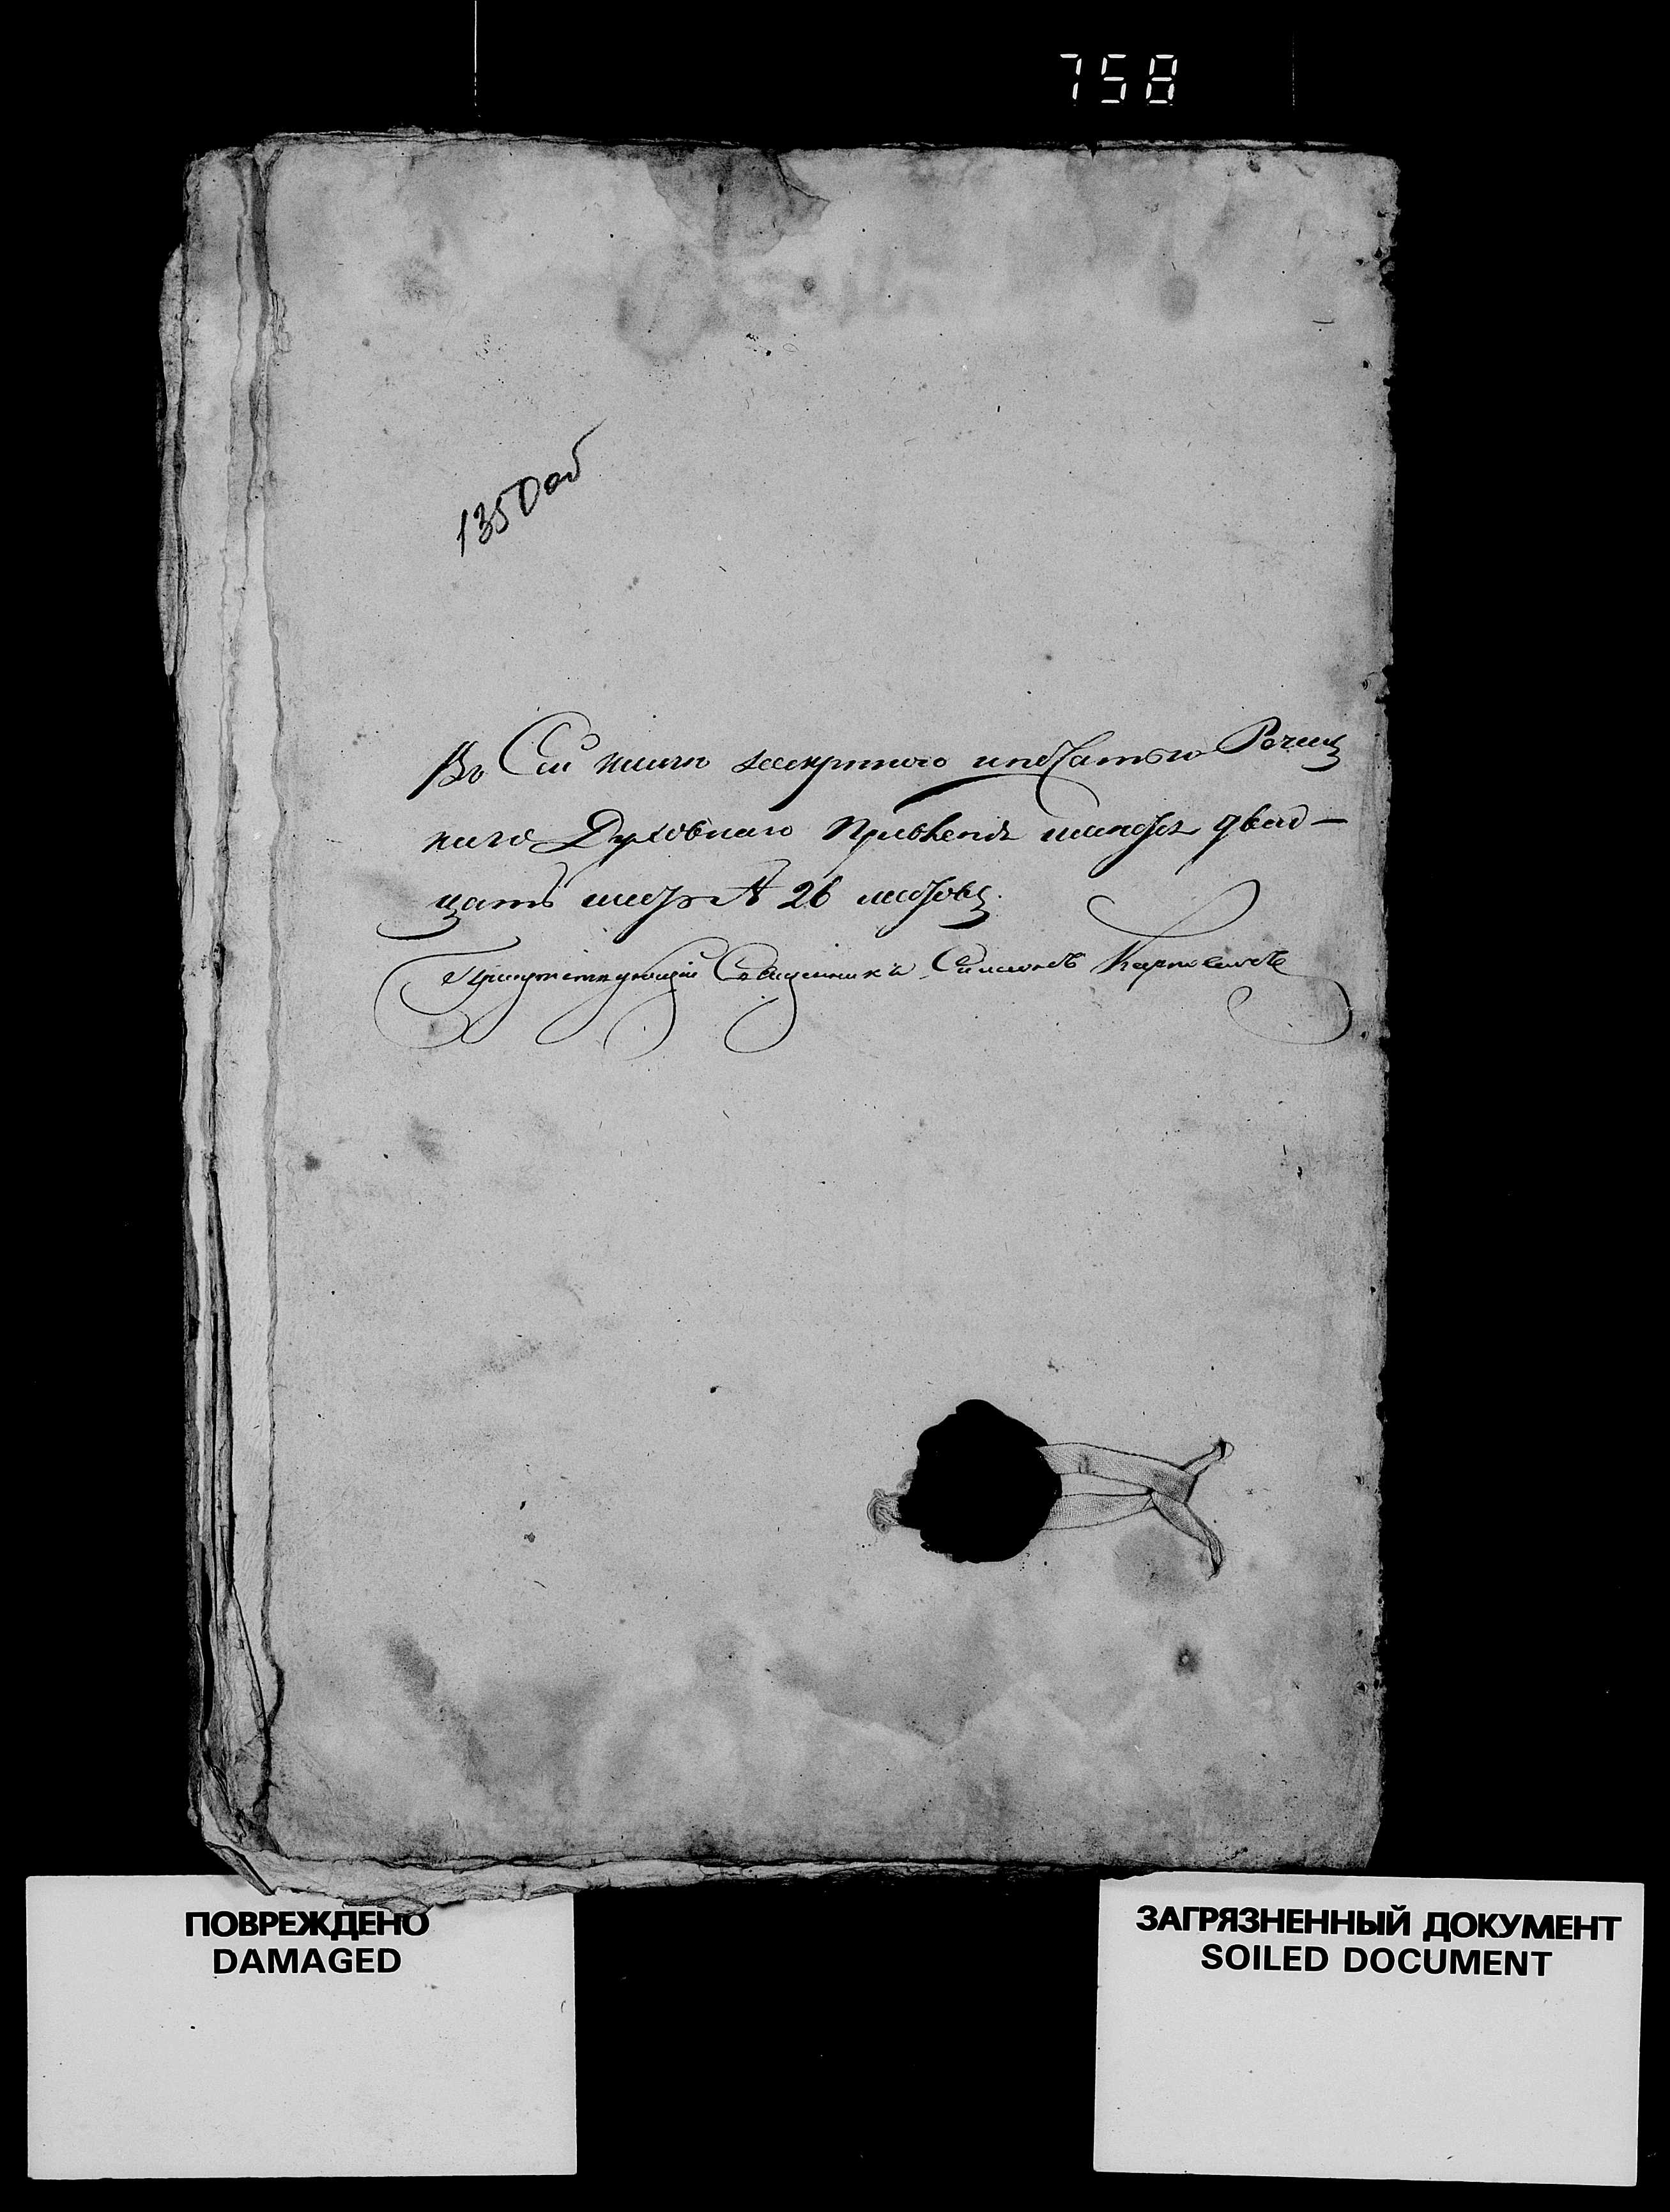 758
1350об
Во Сей книги закрытого печатью Речиц
каго Духовнаго Правленія листовъ двад-
цать шесть А 26 листовъ.
Присутствующій Священникъ Симеонъ
ПОВРЕЖДЕНО
DAMAGED
ЗАГРЯЗНЕННЫЙ ДОКУМЕНТ
SOILED DOCUMENT